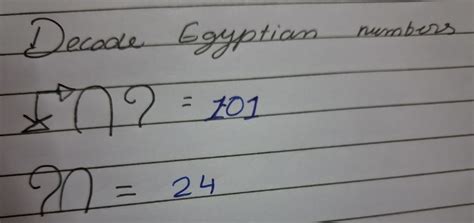 Decode Egyptian numbers
= 101
= 24